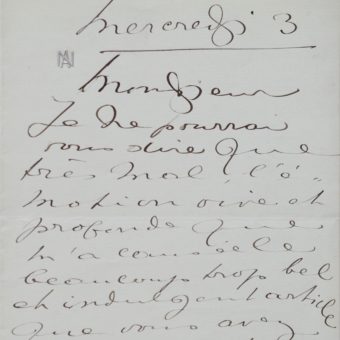 Mercredi 3
Monsieur
Je ne pourrai
vous dire que
très mal, l'é-
motion vive et
profonde que
m'a causée le
beaucoup trop bel
et indulgent article
que vous avez